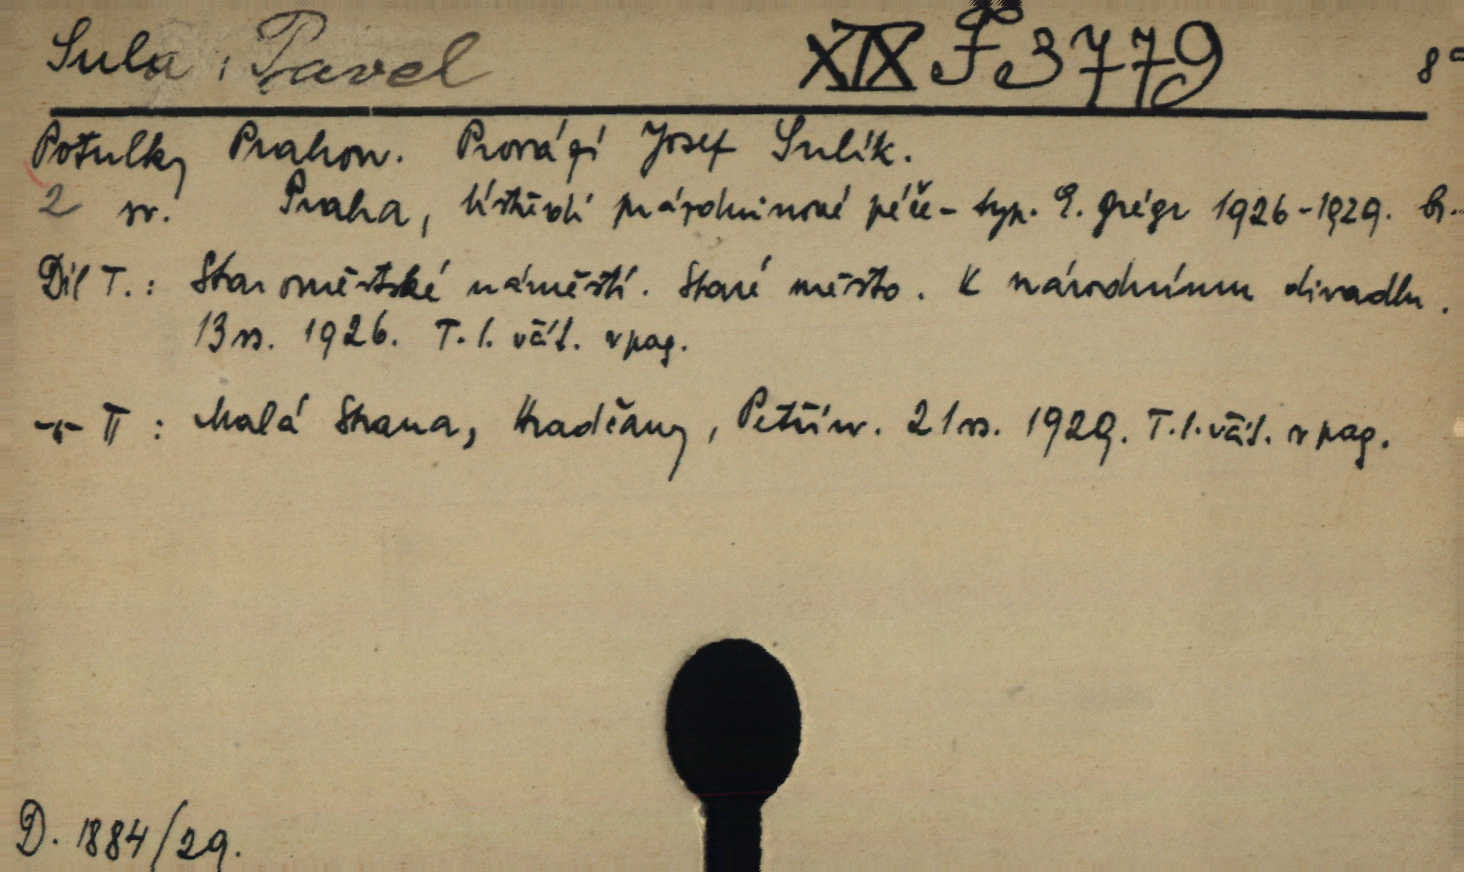 Sula, Pavel XIX F 3779 8°
Potulky Prahou. Provází Josef Sulík.
2 sv. Praha, Ústřední prázdninové péče - typ. E. Grégr 1926-1929. br.
Díl I.: Staroměstské náměstí. Staré město. K národnímu divadlu.
13 ss. 1926. T. l. včít. v pag.
-"- II: Malá Strana, Hradčany, Petřín. 21 ss. 1929. T. l. včít. v pag.
D. 1884/29.